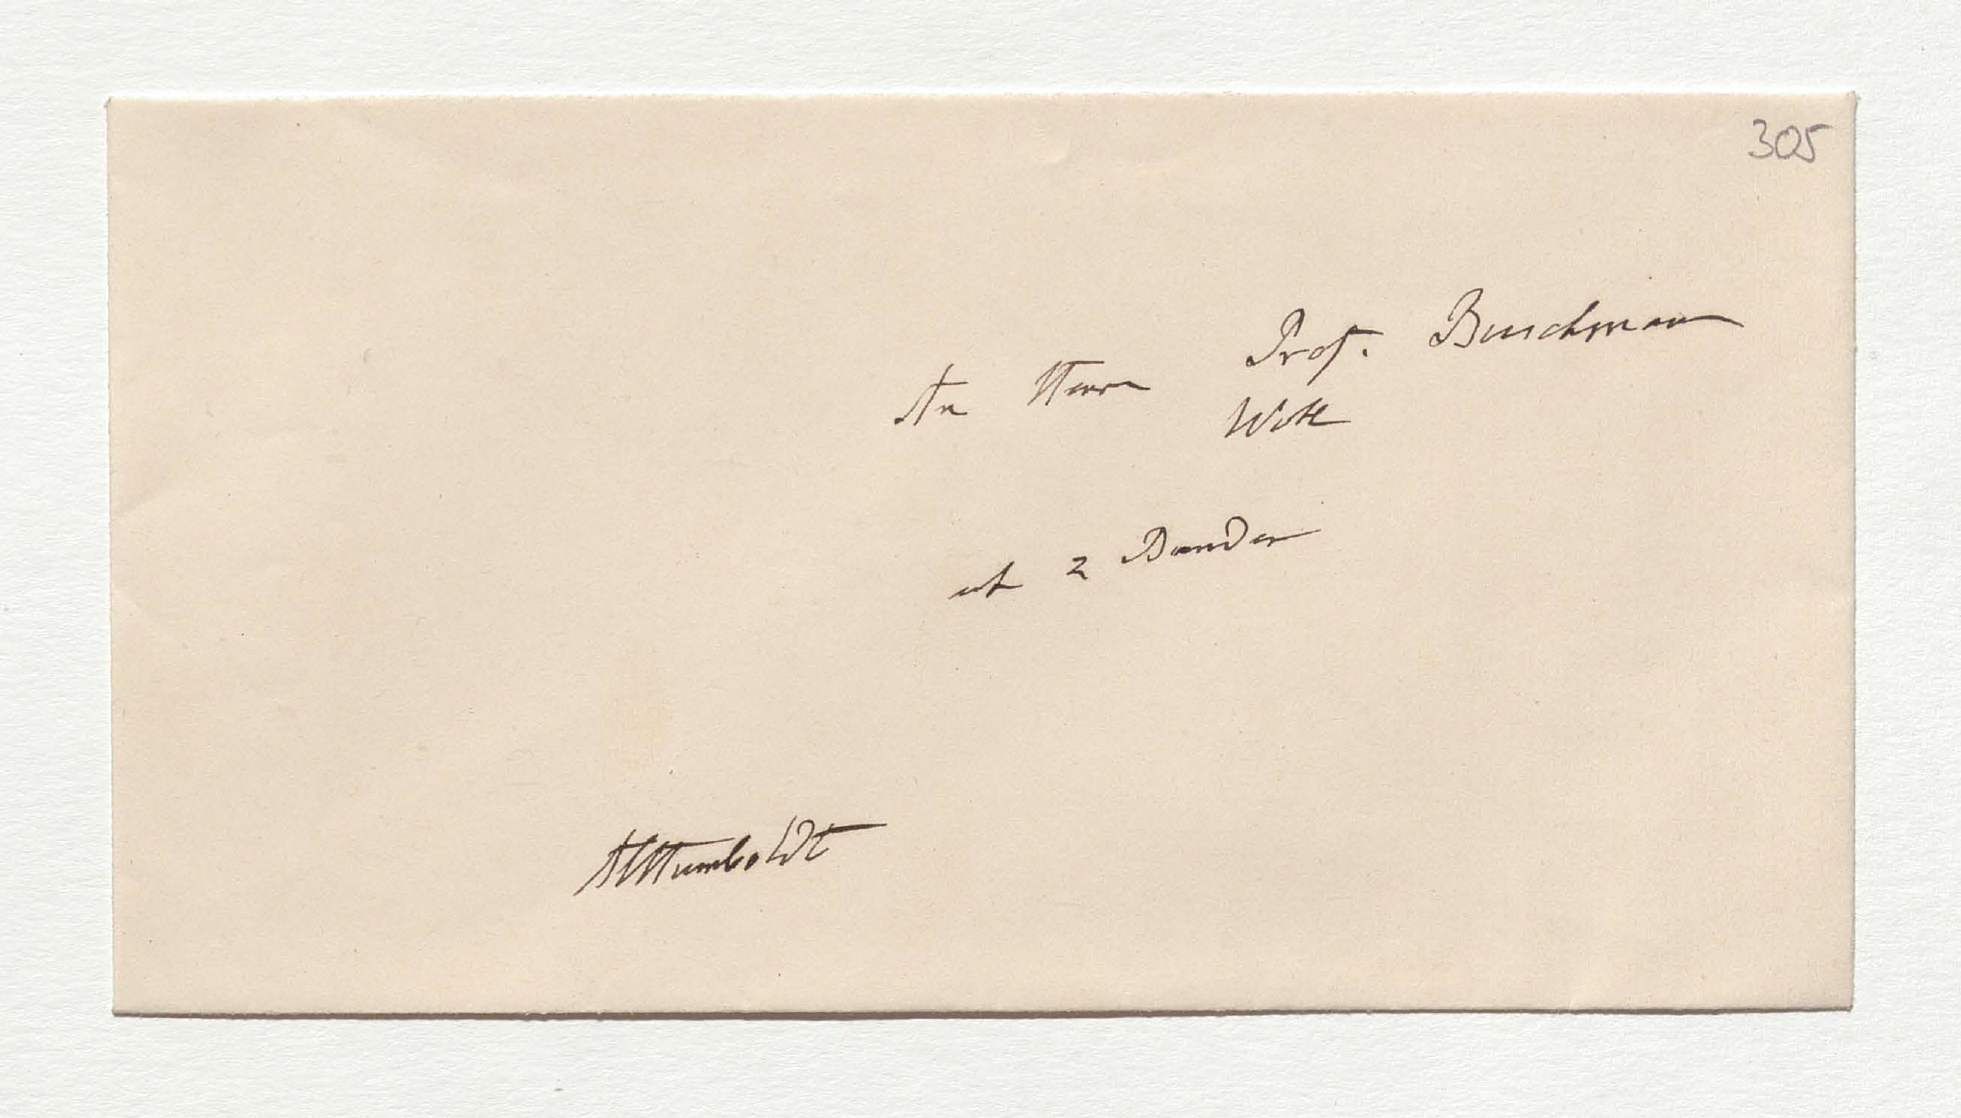 305
An Herrn Prof. Buschmann
2 Bänden
AvHumboldt